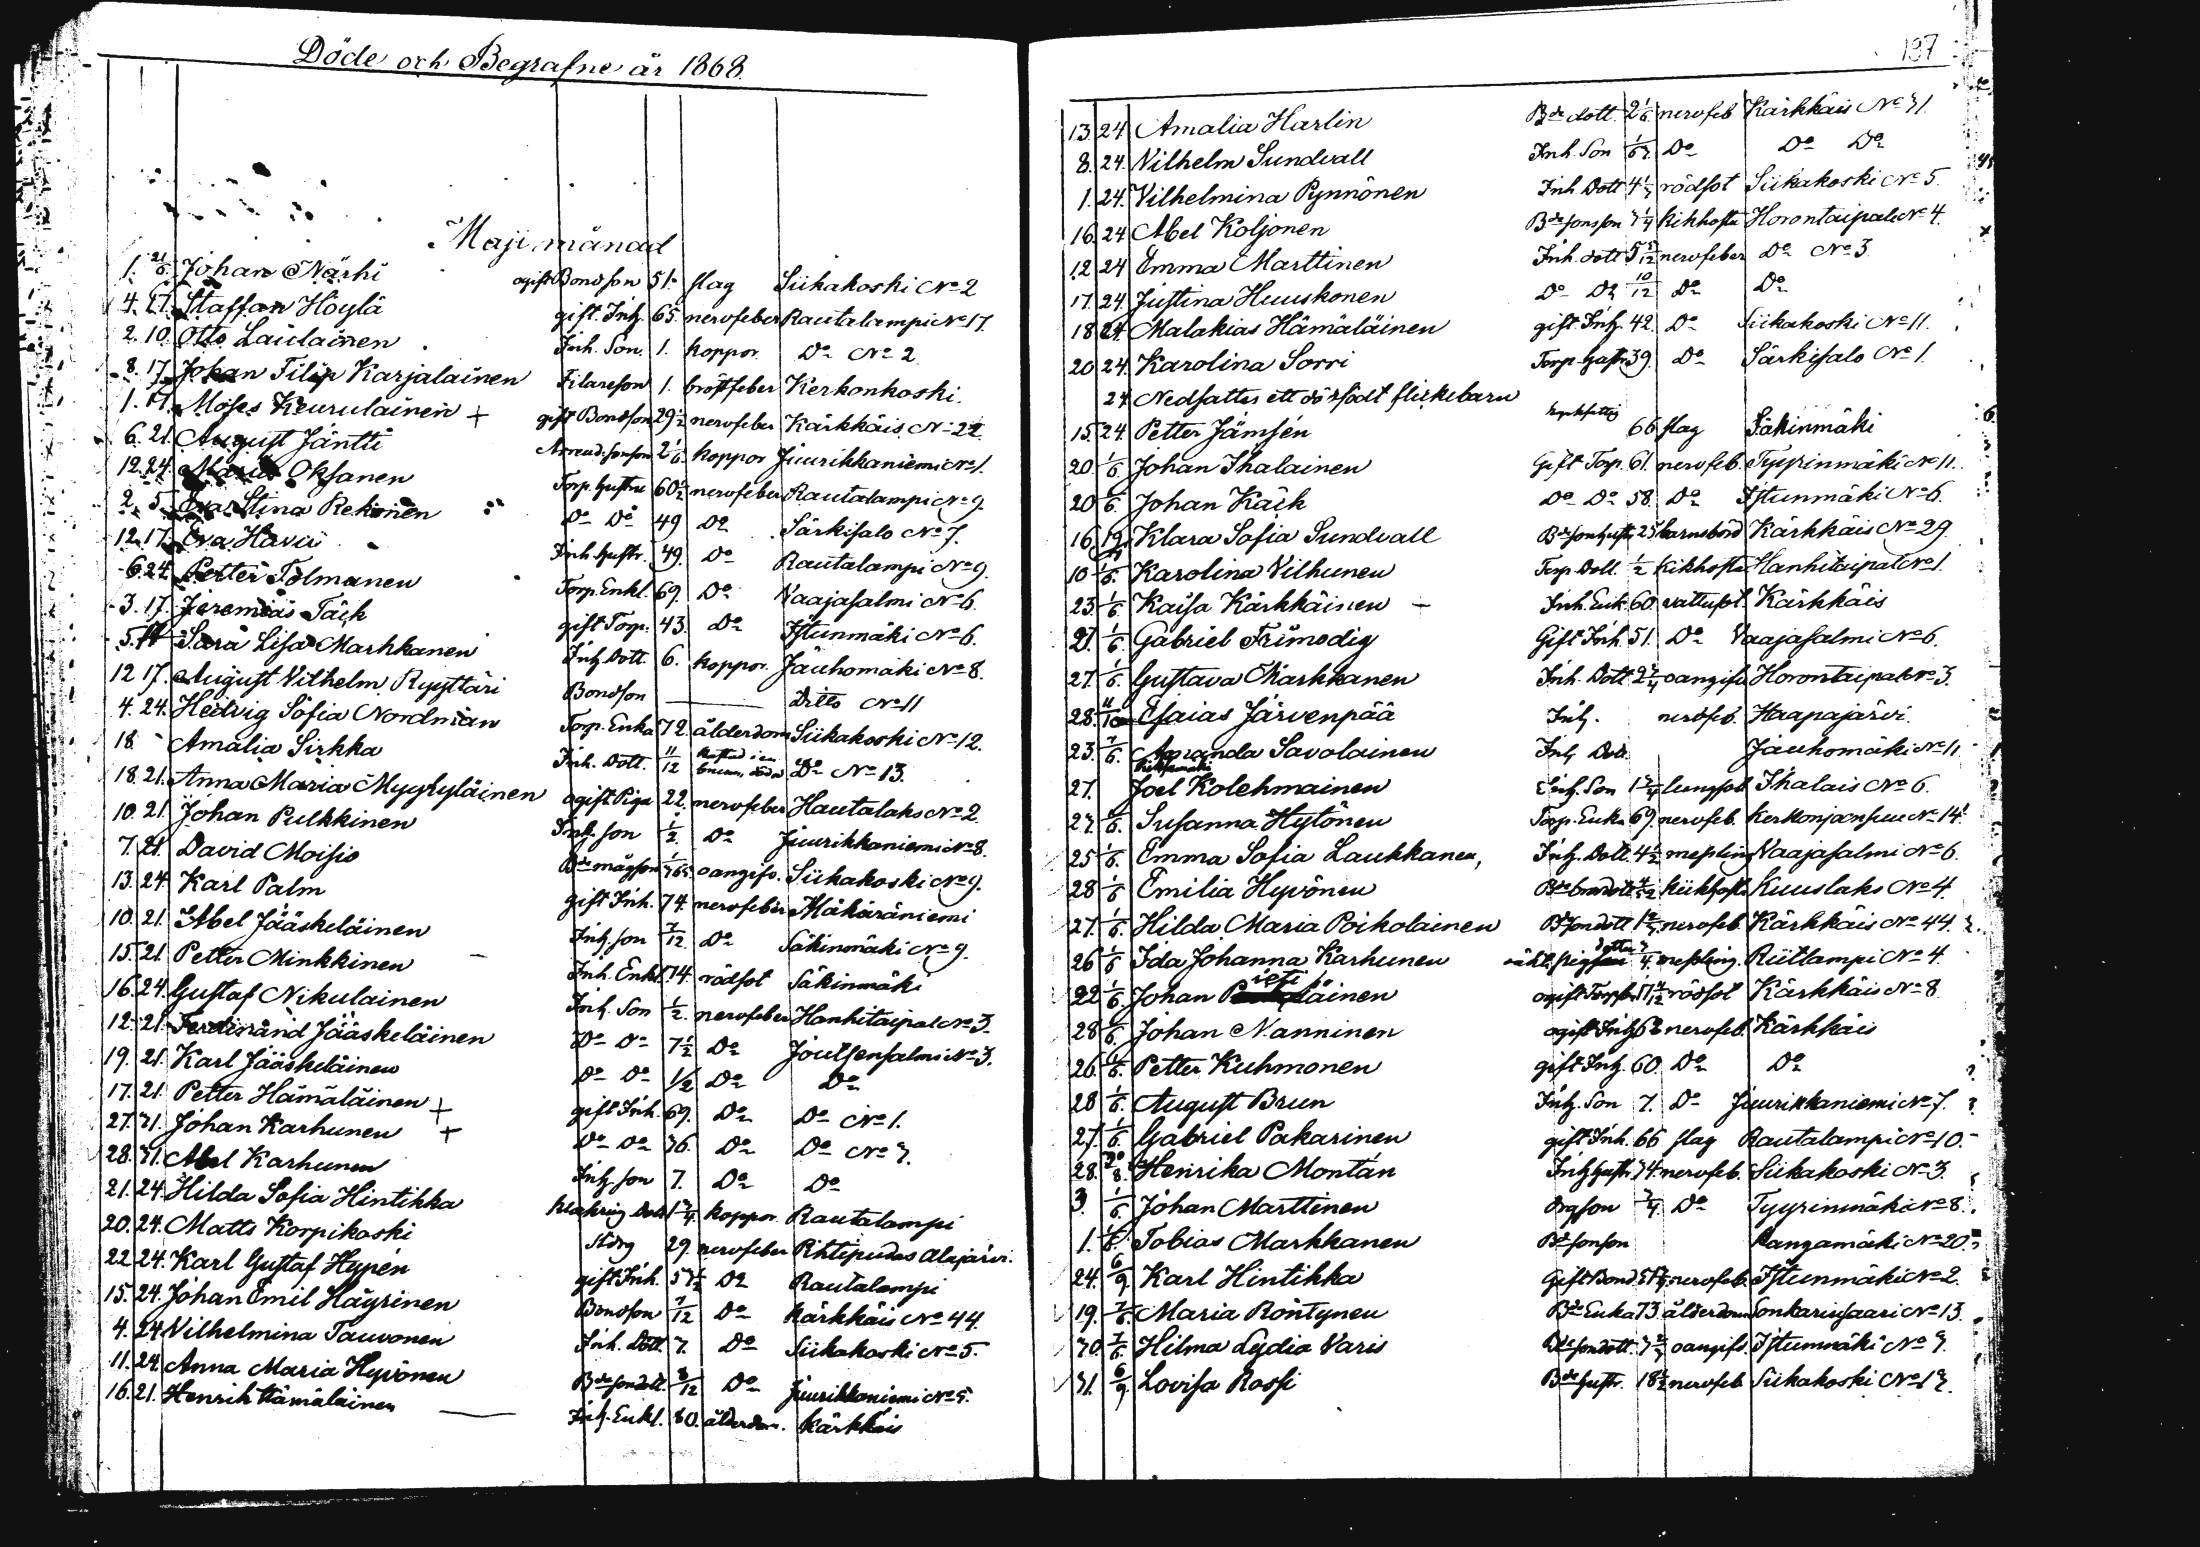 Döde och Begrafne år 1868.
Maji månad
1. 21/6. Johan Närhi ogift Bondson 51. slag Siikakoski No 2
4. 17. Staffan Höylä gift Inh. 65. nervfeber Rautalampi No 17.
2. 10. Otto Laulainen Inh. Son. 1. koppor Do No 2
8. 17. Johan Filip Karjalainen Filareson 1. bröstfeber Kerkonkoski.
1. Moses Keurulainen + gift Bondson 29 1/2 nervfeber Kärkkäis No 22
6. 21. August Jäntti Arrend. sonson 2 1/6. koppor Juurikkaniemi No 1.
12. 24. Maria Oksanen Torp. hustru 60 1/2 nervfeber Rautalampi No 9.
2. 5. Eva Stina Rekonen Do Do 49 Do Särkisalo No 7.
12. 17. Eva Havu Inh. hustr. 49. Do Rautalampi No 9.
6. 24. Petter Tolmanen Torp. Enkl. 69. Do Vaajasalmi No 6.
3. 17. Jeremias Täck gift Torp. 43. Do Istunmäki No 6.
5. Sara Lisa Markkanen Inh. Dott. 6. koppor. Jauhomäki No 8.
12 17. August Vilhelm Ryyttäri Bondson Ditto No 11
4. 24. Hedvig Sofia Nordman Torp. Enka 72. ålderdom Siikakoski No 12.
18 - Amalia Sirkka Inh. Dott. 11/12 Do No 13.
18. 21. Anna Maria Myyryläinen ogift Piga 22. nervfeber Hautalaks No 2.
10. 21. Johan Pulkkinen Inh. son 1/2. Do Juurikkaniemi No 8.
7. 21. David Moisio Bde mågson oangifv. Siikakoski No 9.
13. 24. Karl Palm gift Inh. 74. nervfeber Häkäräniemi
10. 21. Abel Jääskeläinen Inh. son 7/12 Do Säkinmäki No 9.
15. 21. Petter Minkkinen - Inh. Enkl. 74. rödsot Säkinmäki
16. 24. Gustaf Nikulainen Inh. Son 1/2. nervfeber Hanhitaipal No 3.
12. 21. Ferdinand Jääskeläinen Do Do 7 1/2 Do Joutsensalmi No 3.
19. 21. Karl Jääskeläinen Do Do 1/2 Do Do
17. 21. Petter Hämäläinen + gift Inh. 69. Do Do No 1.
27. 31. Johan Karhunen + Do Do 36. Do Do No 3.
28. 31. Abel Karhunen Inh. son 7. Do Do
21. 24. Hilda Sofia Hintikka Dott 1 3/4 koppor Rautalampi
20. 24. Matts Korpikoski Kdrg 29. nervfeber Pihtipudas Alajärvi.
22 24. Karl Gustaf Hypén gift Inh. 57 1/2 Do Rautalampi
15. 24. Johan Emil Häyrinen Bondson 7/12 Do Kärkkäis No 44.
4. 24 Vilhelmina Tauvonen Inh. Dott. 7. Do Siikakoski No 5.
11. 24 Anna Maria Hyvönen Bde sondott. 8/12 Do Juurikkaniemi No 5.
16. 21. Henrik Hämäläinen Inh. Enkl. 80. ålderdom. Kärkkäis
137
13. 24 Amalia Harlin Bde dott. 2 1/6. nervfeb Kärkkäis No 31.
8. 24. Vilhelm Sundvall Inh. Son Do Do Do
1. 24. Vilhelmina Pynnönen Inh. Dott 4 1/2 rödsot Siikakoski No 5.
16. 24 Abel Koljonen Bde sonson 3 1/4 kikhosta Horontaipale No 4.
12 24 Emma Marttinen Inh. dott 5 5/12 nervfeber Do No 3
17. 24 Justina Huuskonen Do Do 10/12 Do Do
18 24. Malakias Hämäläinen gift Inh. 42. Do Siikakoski No 11.
20 24. Karolina Sorri Torp. hustr 39. Do Särkisalo No 1.
24 Nedsattes ett dödfödt flickebarn
15. 24. Petter Jämsén 66 slag Säkinmäki
20 1/6. Johan Ihalainen Gift Torp. 61. nervfeb. Tyyrinmäki No 11.
20 1/6. Johan Käck Do Do 58. Do Istunmäki No 6.
16. Klara Sofia Sundvall Bde sonhustr 25 barnsbörd Kärkkäis No 29.
10 1/6. Karolina Vilhunen Torp. Dott. 1/2 kikhosta Hanhitaipal No 1.
23. 1/6. Kaisa Kärkkäinen - Inh. Enk. 60. vattusot. Kärkkäis
27. 1/6. Gabriel Frimodig Gift Inh. 51. Do Vaajasalmi No 6.
27. 1/6. Gustava Markkanen Inh. Dott 2 3/4 oangifv. Horontaipal No 3.
28. 11/10 Esaias Järvenpää Inh. nervfeb. Haapajärvi.
23. 7/6. Amanda Savolainen Inh. Dott. Jauhomäki No 11
27. Joel Kolehmainen Inh. Son 1 3/4 lungsot Ihalais No 6.
27. 1/6. Susanna Hytönen Torp. Enka 69. nervfeb. Kerkonjoensuu No 14.
25 1/6. Emma Sofia Laukkanen, Inh. Dott. 4 1/2 messling Vaajasalmi No 6.
28 1/6 Emilia Hyvönen kikhosta Kuuslaks No 4.
27. 1/6. Hilda Maria Poikolainen Bde sondott nervfeb. Kärkkäis No 44.
26 1/6 Ida Johanna Karhunen dotter 3/4. messling. Riitlampi No 4.
22 1/6. Johan äinen rödsot Kärkkäis No 8
28 1/6. Johan Nanninen ogift Inh. nervfeb. Kärkkäis
26. 1/6. Petter Kuhmonen gift Inh. 60. Do Do
28 1/6. August Brun Inh. Son 7. Do Juurikkaniemi No 7.
27. 1/6. Gabriel Pakarinen gift Inh. 66 slag Rautalampi No 10.
28. 30/8. Henrika Montán Inh. hustr 74. nervfeb. Siikakoski No 3.
3 1/6. Johan Marttinen Drgson 3/4. Do Tyyrinmäki No 8.
1. 1/6. Tobias Markkanen Bde sonson Kangamäki No 20.
24. 6/9. Karl Hintikka Gift Bond. nervfeb. Istunmäki No 2.
19. 7/6. Maria Röntynen Bde Enka 73 ålderdom Sonkarinsaari No 13.
30. 7/6. Hilma Lydia Varis Bde sondott oangifv. Istunmäki No 3.
31. 6/9 Lovisa Rossi Bde hustr. 18 1/2 nervfeb. Siikakoski No 13.